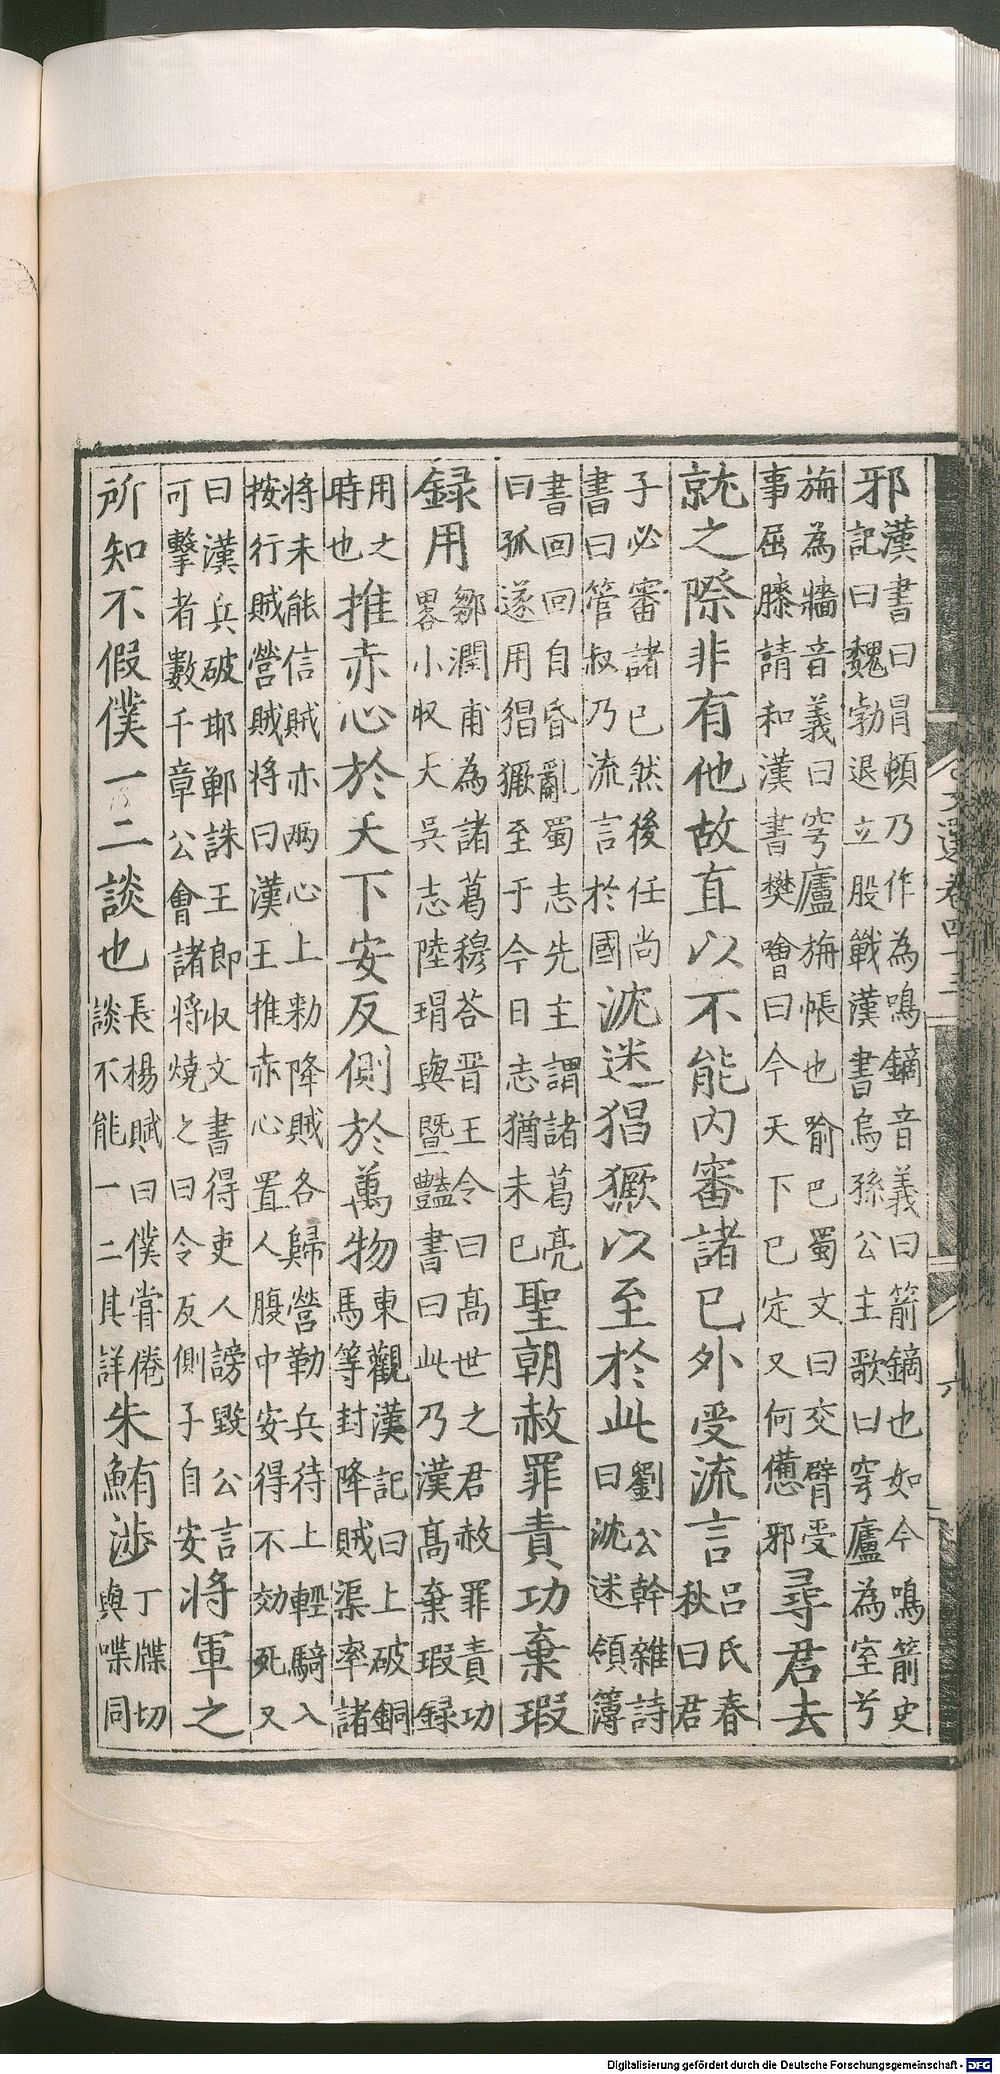 文選卷四十三
六
邪漢書曰冒頓乃作為鳴鏑音義曰箭鏑也如今鳴箭史
記曰魏勃退立股戰漢書烏孫公主歌曰穹廬為室兮
旃為牆音義曰穹廬旃帳也喻巴蜀文曰交臂受
事屈膝請和漢書樊噲曰今天下已定又何憊邪尋君去
就之際非有他故直以不能内審諸已外受流言呂氏春
秋曰君
子必審諸已然後任尚
書曰管叔乃流言於國沈迷猖獗以至於此劉公幹雜詩
曰沈迷領簿
書回回自昏亂蜀志先主謂諸葛亮
曰孤遂用猖獗至于今日志猶未已聖朝赦罪責功棄瑕
録用鄒潤甫為諸葛穆荅晉王令曰高世之君赦罪責功
畧小収大吳志陸瑁與暨豔書曰此乃漢高棄瑕録
用之
時也推赤心於天下安反側於萬物東觀漢記曰上破銅
馬等封降賊渠率諸
將未能信賊亦兩心上勑降賊各歸營勒兵待上輕騎入
按行賊營賊將曰漢王推赤心置人腹中安得不効死又
曰漢兵破耶鄲誅王郎収文書得吏人謗毀公言
可擊者數千章公會諸將燒之曰令反側子自安將軍之
所知不假僕一二談也長楊賦曰僕甞倦
談不能一二其詳朱鮪涉丁牒切
與喋同
Digitalisierung gefördert durch die Deutsche Forschungsgemeinschaft - DFG